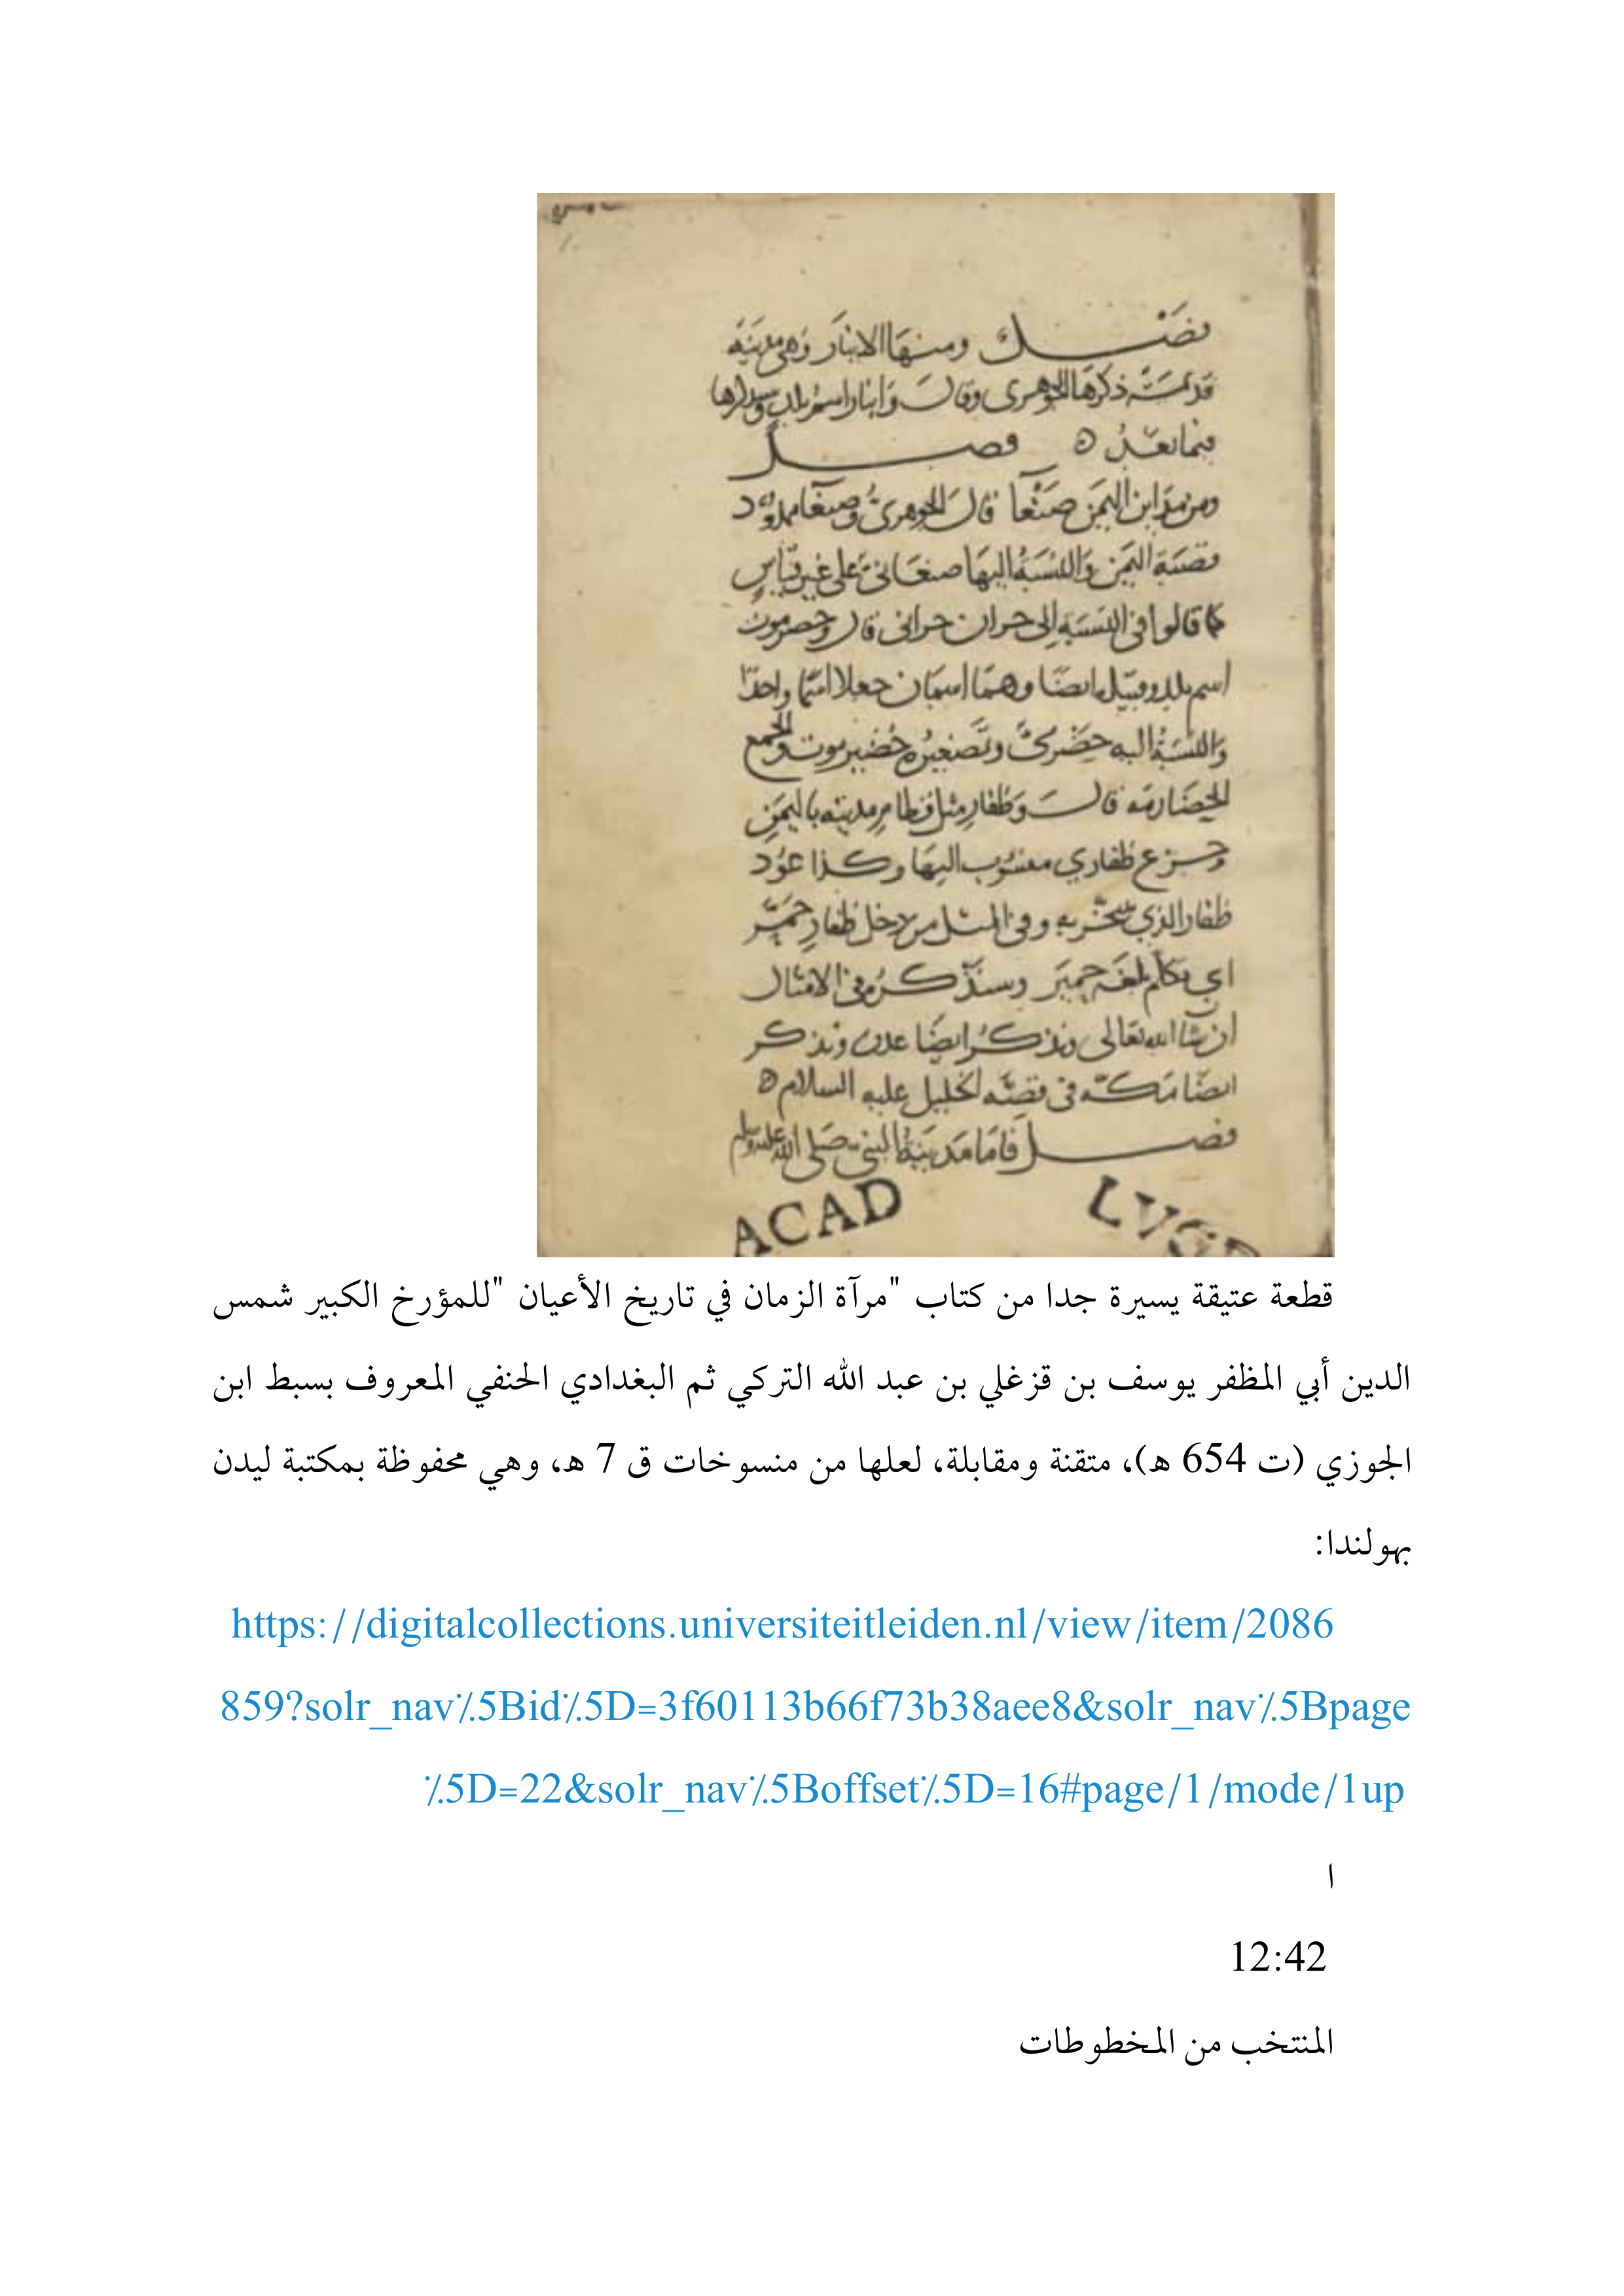 فصل ومنها الانبار وهي مدينة
قديمة ذكرها الجوهري وقال وانبار اسم بلد وسنذكرها
فيما بعد ه فصل
ومن مداين اليمن صنعآ قال الجوهري وصنعآ ممدود
قصبة اليمن والنسبة اليها صنعاني على غير قياس
كما قالوا في النسبة الى حران حراني قال وحضرموت
اسم بلد وقبيلة ايضا وهما اسمان جعلا اسما واحدا
والنسبة اليه حضرمي وتصغيره حضيرموت والجمع
الحضارمة قال وظفار مثل قطام مدينة باليمن
وجزع ظفاري منسوب اليها وكذا عود
ظفار الذي يتبخر به وفي المثل من دخل ظفار حمر
اي تكلم بلغة حمير وسنذكره في الامثال
ان شا الله تعالى ونذكر ايضا عدن ونذكر
ايضا مكة في قصة الخليل عليه السلام ه
فصل فاما مدينة النبي صلى الله عليه وسلم
ACAD LVGD
قطعة عتيقة يسيرة جدا من كتاب "مرآة الزمان في تاريخ الأعيان "للمؤرخ الكبير شمس
الدين أبي المظفر يوسف بن قزغلي بن عبد الله التركي ثم البغدادي الحنفي المعروف بسبط ابن
الجوزي (ت 654 ه)، متقنة ومقابلة، لعلها من منسوخات ق 7 ه، وهي محفوظة بمكتبة ليدن
بهولندا:
https://digitalcollections.universiteitleiden.nl/view/item/2086
859?solr_nav٪5Bid٪5D=3f60113b66f73b38aee8&solr_nav٪5Bpage
٪5D=22&solr_nav٪5Boffset٪5D=16#page/1/mode/1up
ا
12:42
المنتخب من المخطوطات